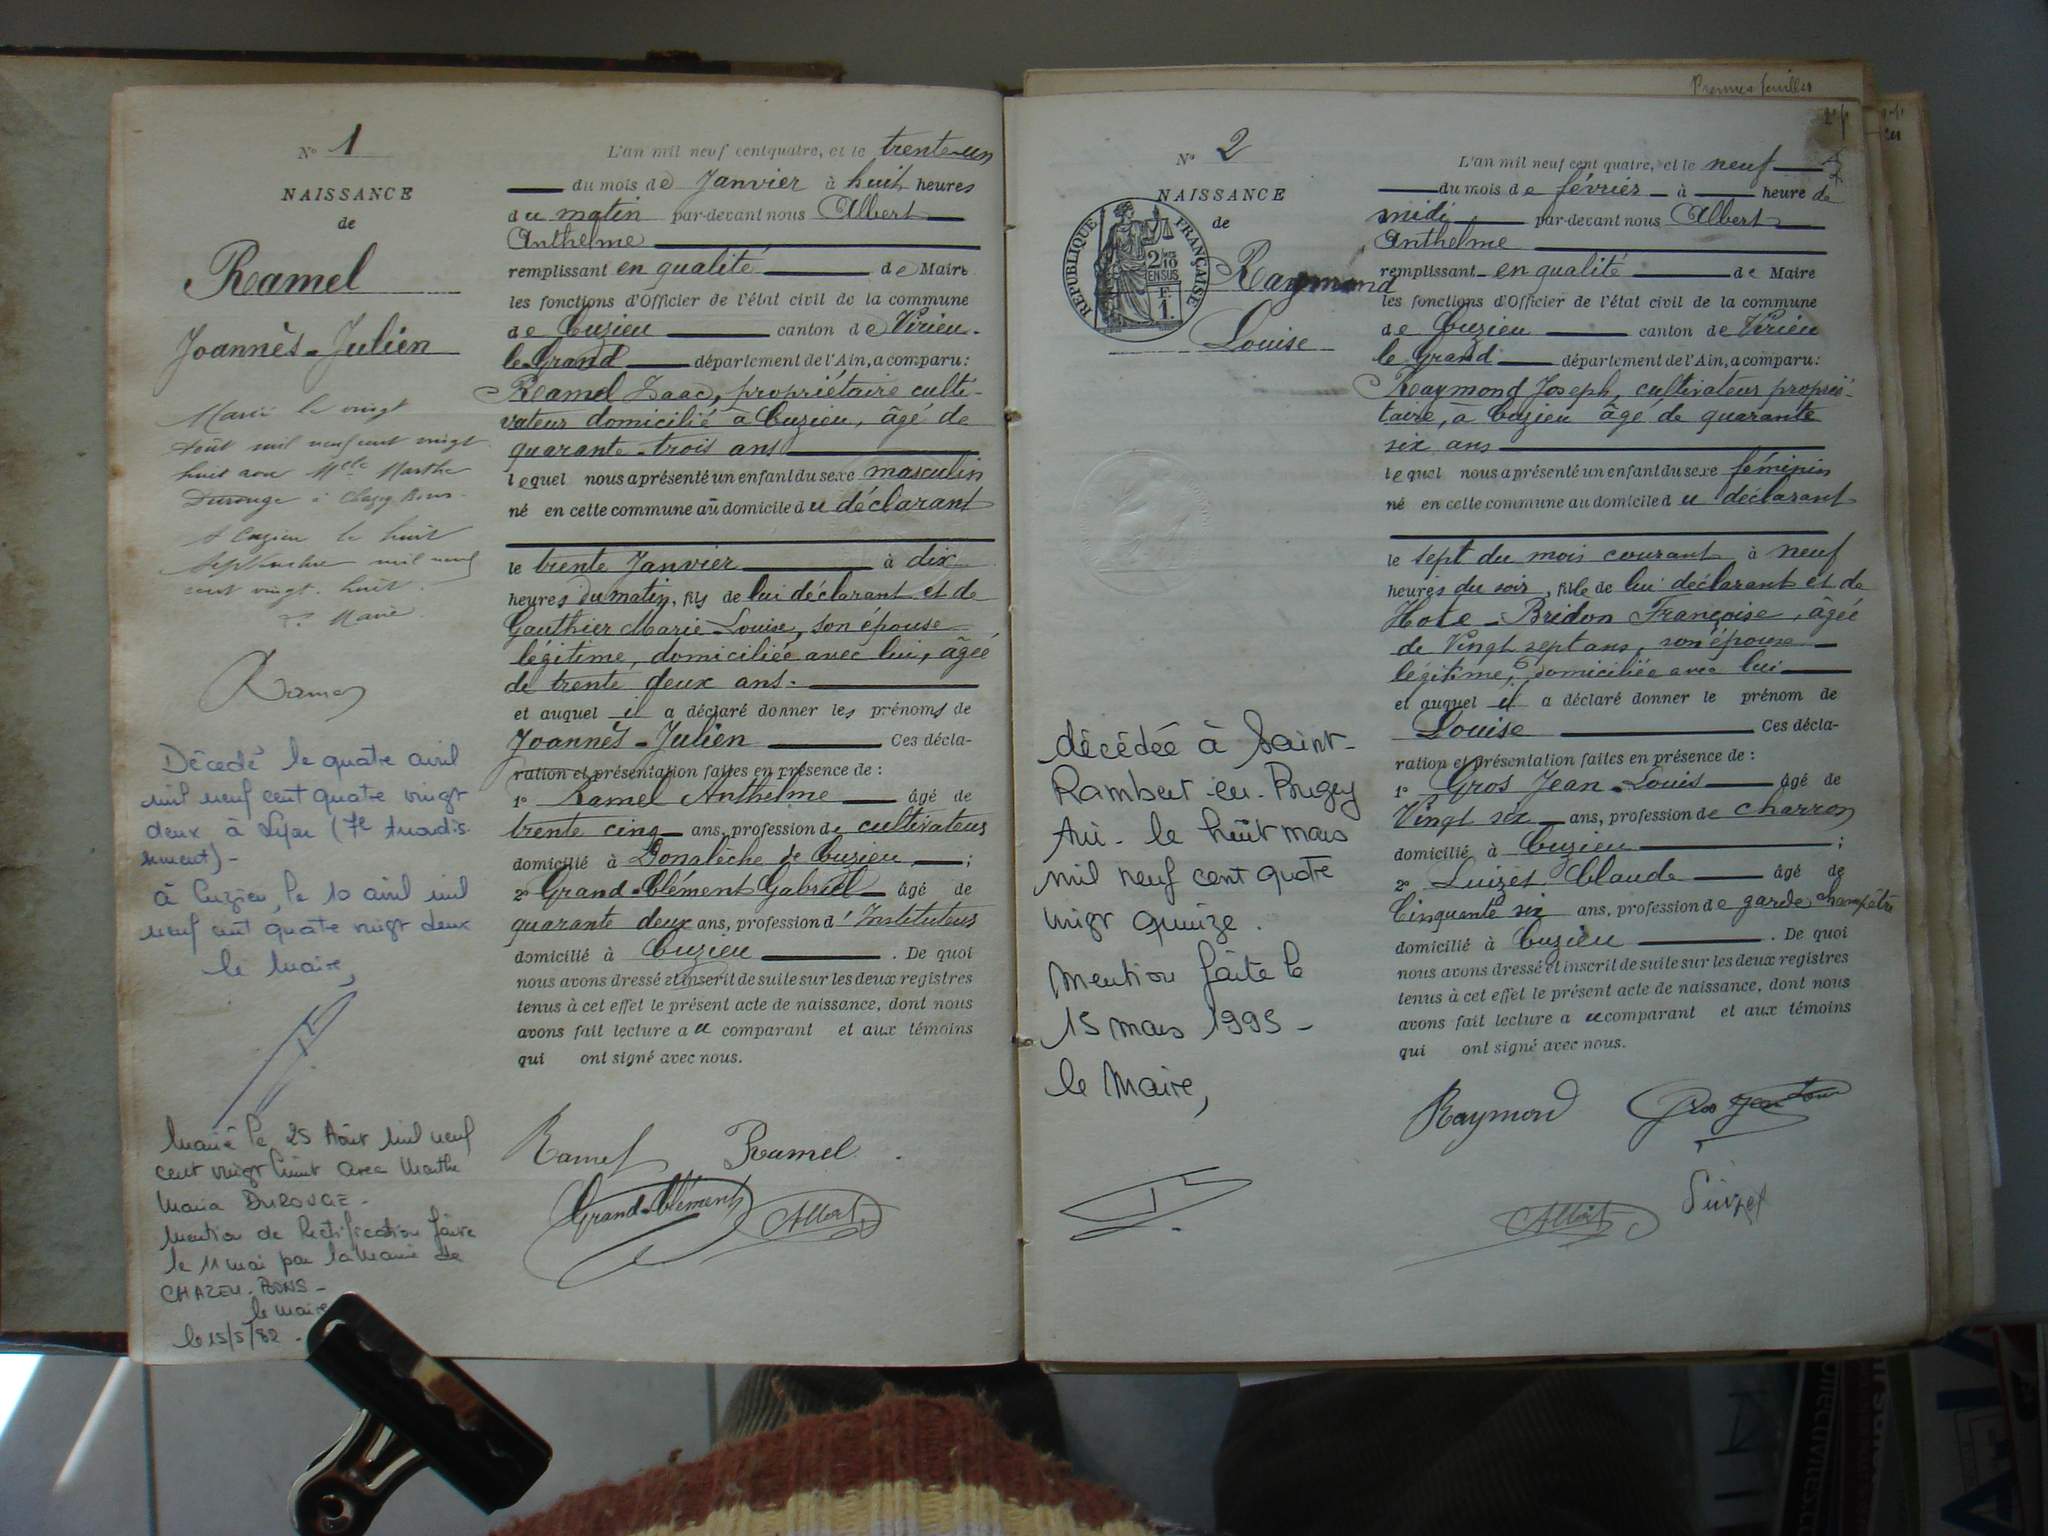 Nº 1
NAISSANCE
de
Ramel
Joannès-Julien
Marié le vingt
août mil neuf cent vingt
huit avec Mlle Marthe
Durouge à Chazey Bons.
A Cuzieu le huit
septembre mil neuf
cent vingt huit.
Ramel
Décédé le quatre avril
mil neuf cent quatre vingt
deux à Lyon (7e Arrondis
sement) -
à Cuzieu, le 10 avril mil
neuf cent quatre vingt deux
le Maire,
Marié le 25 Août mil neuf
cent vingt huit avec Marthe
Maria DUROUGE -
Mention de Rectification faite
le 11 mai par la Mairie de
CHAZEY-BONS -
le Maire
le 15/5/82 -
L'an mil neuf cent quatre, et le trente-un
du mois de Janvier à huit heures
du matin par-devant nous Albert
Anthelme
remplissant en qualité de Maire
les fonctions d'Officier de l'état civil de la commune
de Cuzieu canton de Virieu-
le-Grand département de l'Ain, a comparu:
Ramel Isaac, propriétaire culti-
vateur domicilié à Cuzieu, âgé de
quarante-trois ans
lequel nous a présenté un enfant du sexe masculin
né en cette commune au domicile du déclarant
le trente Janvier à dix
heures du matin, fils de lui déclarant et de
Gauthier Marie-Louise, son épouse
légitime, domiciliée avec lui, âgée
de trente deux ans.
et auquel il a déclaré donner les prénoms de
Joannès-Julien Ces décla-
ration et présentation faites en présence de :
1º Ramel Anthelme âgé de
trente cinq ans, profession de cultivateur
domicilié à Cuzieu ;
2º Grand-Clément Gabriel âgé de
quarante deux ans, profession d'Instituteur
domicilié à Cuzieu . De quoi
nous avons dressé et inscrit de suite sur les deux registres
tenus à cet effet le présent acte de naissance, dont nous
avons fait lecture au comparant et aux témoins
qui ont signé avec nous.
Ramel Ramel
Grand-Clément Albert
Premier feuillet
Nº 2
NAISSANCE
de
RÉPUBLIQUE FRANÇAISE
2/10
EN SUS
F.
1.
Raymond
Louise
décédée à Saint-
Rambert-en-Bugey
Ain - le huit mars
mil neuf cent quatre
vingt quinze.
Mention faite le
15 mars 1995 -
le Maire,
L'an mil neuf cent quatre, et le neuf
du mois de février à heure de
midi par-devant nous Albert
Anthelme
remplissant en qualité de Maire
les fonctions d'Officier de l'état civil de la commune
de Cuzieu canton de Virieu
le Grand département de l'Ain, a comparu:
Raymond Joseph, cultivateur proprié-
taire, à Cuzieu âgé de quarante
six ans
lequel nous a présenté un enfant du sexe féminin
né en cette commune au domicile du déclarant
le sept du mois courant à neuf
heures du soir, fille de lui déclarant et de
Hote-Bridon Françoise, âgée
de Vingt sept ans, son épouse
légitime, domiciliée avec lui
et auquel il a déclaré donner le prénom de
Louise Ces décla-
ration et présentation faites en présence de :
1º Gros Jean-Louis âgé de
Vingt six ans, profession de charron
domicilié à Cuzieu ;
2º Luizet Claude âgé de
Cinquante six ans, profession de garde champêtre
domicilié à Cuzieu . De quoi
nous avons dressé et inscrit de suite sur les deux registres
tenus à cet effet le présent acte de naissance, dont nous
avons fait lecture au comparant et aux témoins
qui ont signé avec nous.
Raymond Gros Jean Louis
Albert Luizet